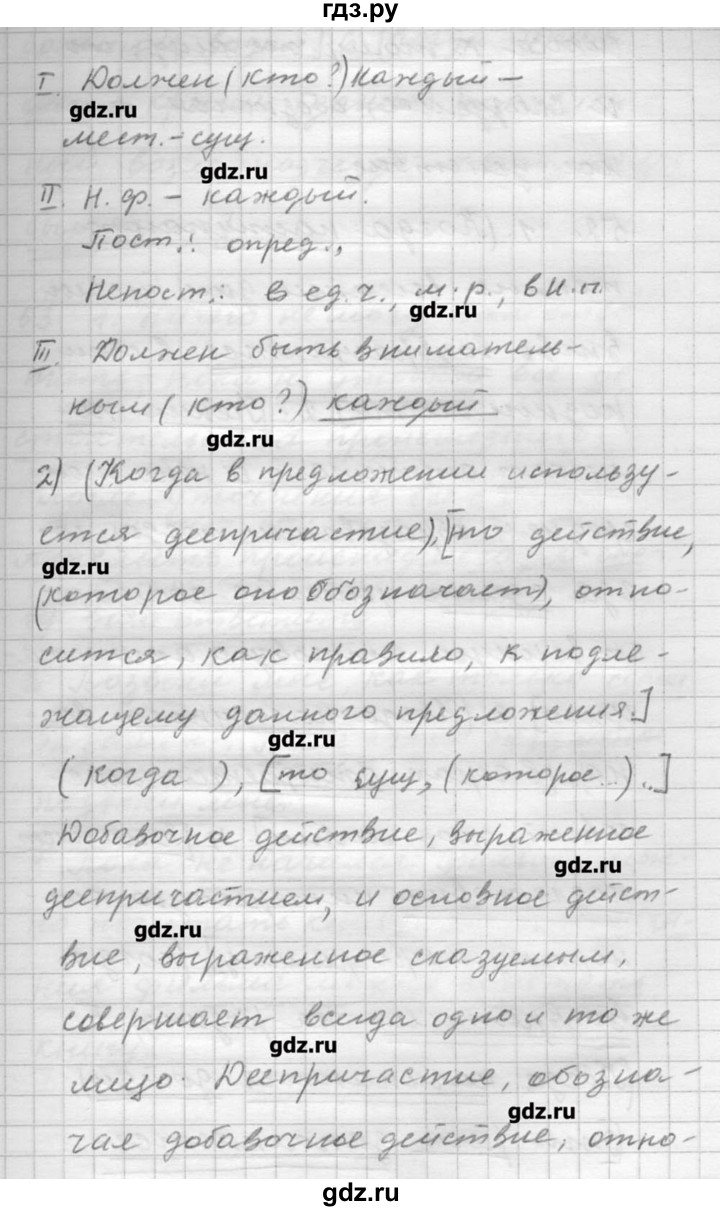 гдз.ру
I. Должен (кто?) каждый –
gdz.ru
мест.-сущ.
gdz.ru
II. Н. ф. – каждый.
Пост.: опред.,
Непост.: в ед.ч., м.р., в И.п.
gdz.ru
III. Должен быть вниматель-
ным (кто?) каждый
gdz.ru
2) (Когда в предложении использу-
ется деепричастие), [то действие,
gdz.ru
(которое оно обозначает), отно-
сится, как правило, к подле-
жащему данного предложения.]
gdz.ru
(когда ), [то сущ, (которое...)...]
Добавочное действие, выраженное
gdz.ru
деепричастием, и основное дейст-
gdz.ru
вие, выраженное сказуемым,
совершает всегда одно и то же
gdz.ru
лицо. Деепричастие, обозна-
gdz.ru
чая добавочное действие, отно-
gdz.ru